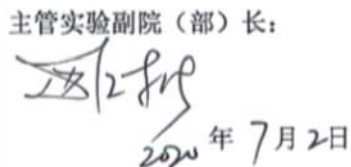 主管实验副院（部）长：
2020年7月2日